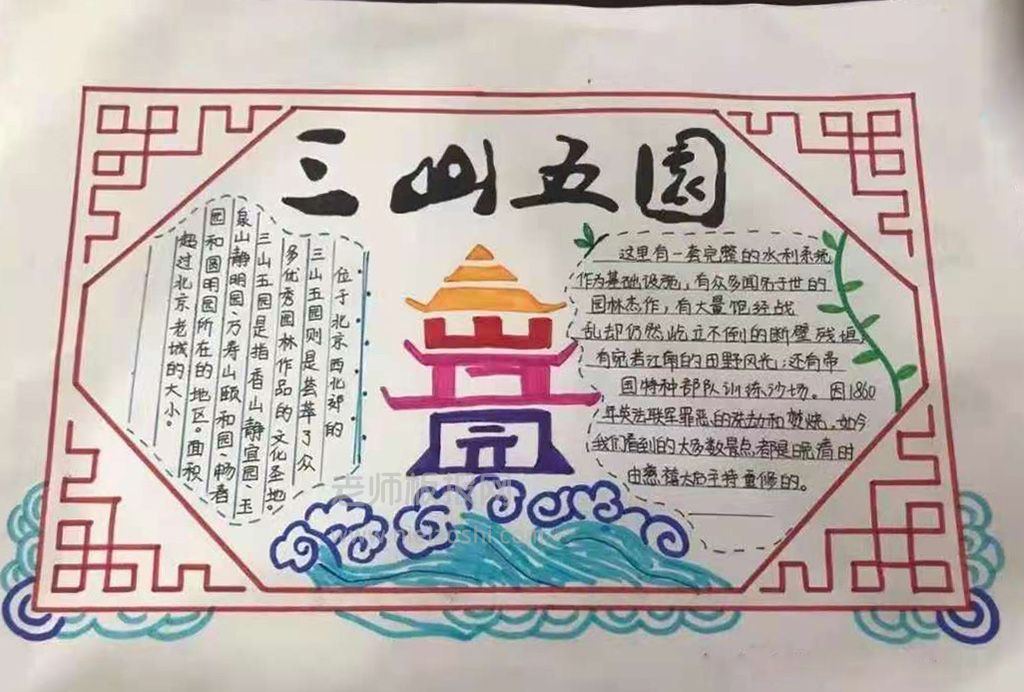 三山五园
位于北京西北郊的
三山五园则是荟萃了众
多优秀园林作品的文化圣地。
三山五园是指香山静宜园、玉
泉山静明园、万寿山颐和园、畅春
园和圆明园所在的地区。面积
超过北京老城的大小。
这里有一套完整的水利系统
作为基础设施，有众多闻名于世的
园林杰作，有大量饱经战
乱却仍然屹立不倒的断壁残垣，
有宛若江南的田野风光；还有帝
国特种部队训练沙场。因1860
年英法联军罪恶的洗劫和焚烧，如今
我们看到的大多数景点都是晚清时
由慈禧太后主持重修的。
老师板报网